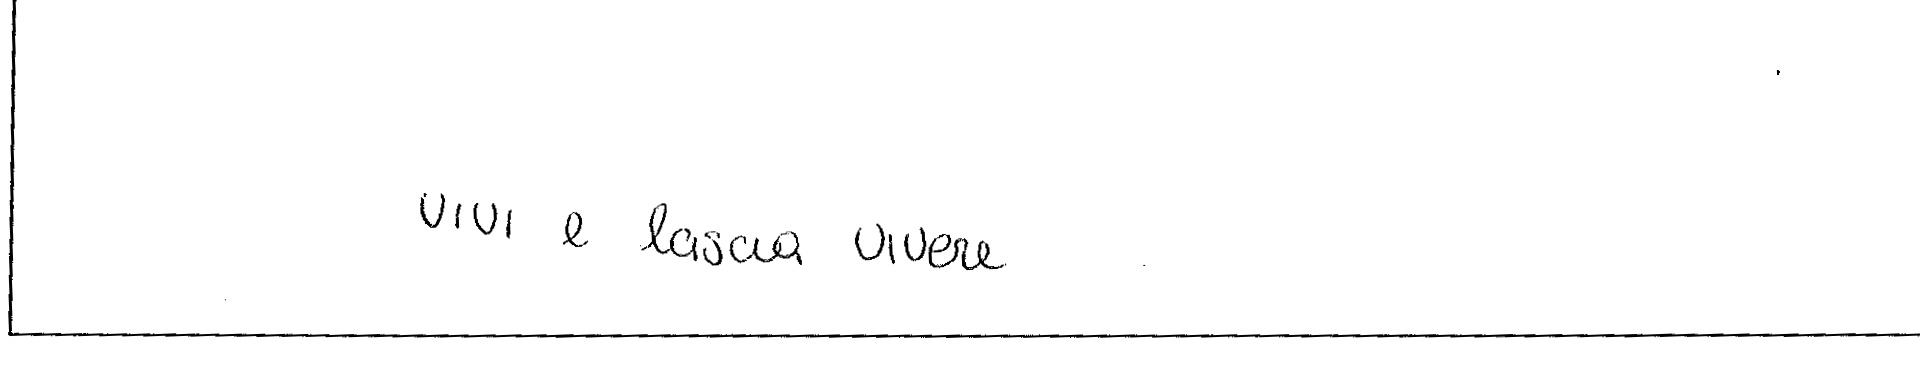 vivi e lascia vivere